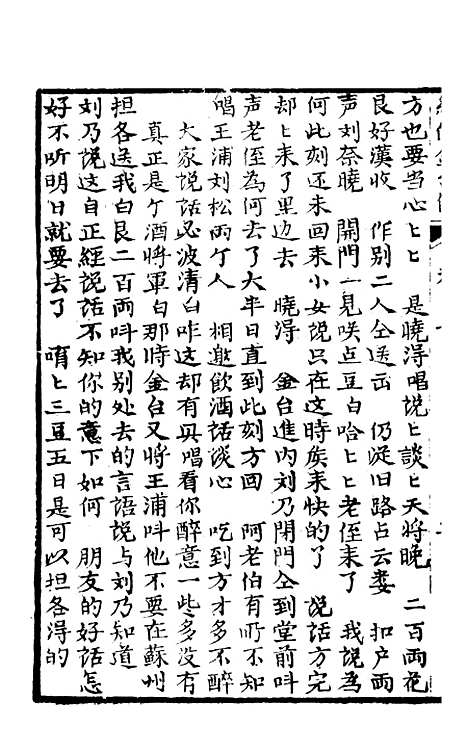 方也要当心匕匕　是曉淂唱說匕談匕天將晚　二百両花
良好漢收　作别二人仝送出　仍從旧路占云婁　扣户両
声刘奈曉　開門一見咲点豆白哈匕匕老侄耒了　我說為
何此刻还未回耒小女說只在这時族耒快的了　說話方完
却匕耒了里边去　曉淂　金台進内刘乃閉門仝到堂前呌
声老侄為何去了大半日直到此刻方回　阿老伯有所不知
唱王浦刘松両个人　相邀飲酒話談心　吃到方才多不醉
大家說話必波清白咋这却有真唱看你醉意一些多没有
真正是个酒將軍白那時金台又將王浦呌他不要在蘇州
担各送我白艮二百両呌我别处去的言語說与刘乃知道
刘乃說这自正經說話不知你的意下如何　朋友的好話怎
好不听明日就要去了　唷匕三豆五日是可以担各淂的